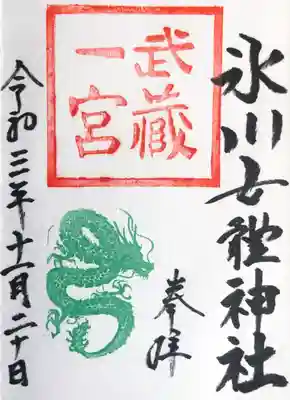 氷川女體神社
奉拝
武蔵
一宮
令和三年十一月二十日